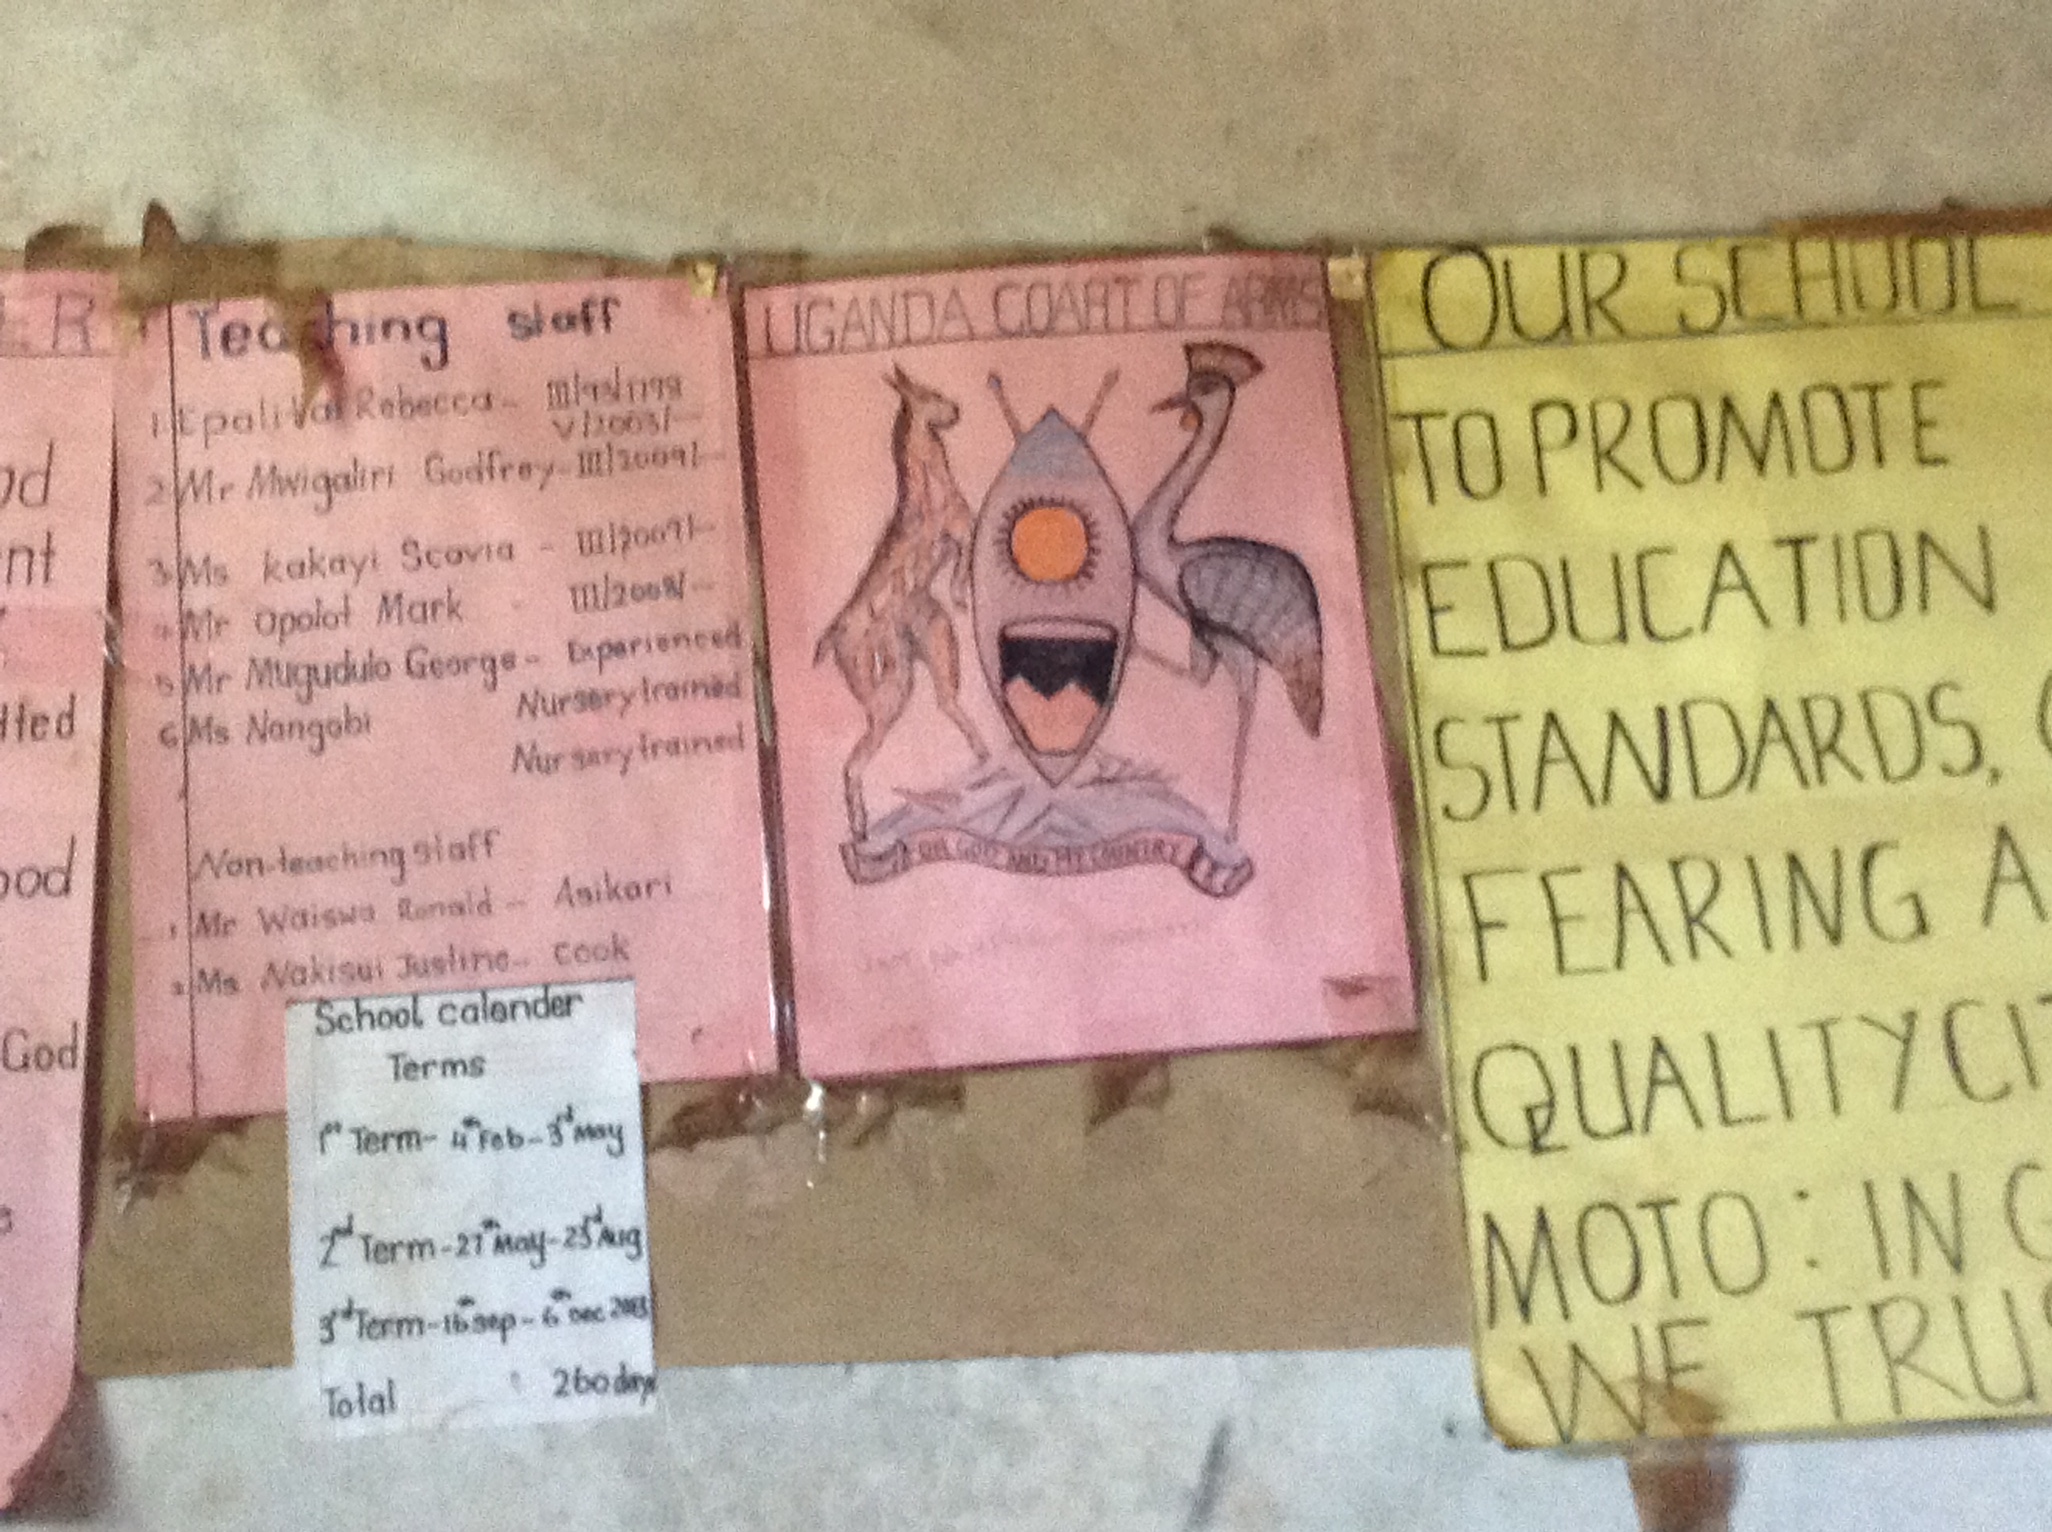 R
od
nt
tted
ood
God
Teaching staff
1. Epalitai Rebecca - III/93/1798
V/2003/-
2. Mr Mwigaliri Godfrey - III/2009/-
3. Ms kakayi Scovia - III/2007/-
4. Mr Opolot Mark - III/2008/-
5. Mr Mugudulo George - Experienced
Nursery trained
6. Ms Nangobi
Nursery trained
Non-teaching staff
1. Mr Waiswa Ronald - Asikari
2. Ms Nakisui Justine - cook
School calander
Terms
1st Term - 4th Feb - 3rd May
2nd Term - 27th May - 23rd Aug
3rd Term - 16th Sep - 6th Dec 2013
Total 260 days
UGANDA COART OF ARMS
GOD AND MY COUNTRY
OUR SCHOOL
TO PROMOTE
EDUCATION
STANDARDS,
FEARING A
QUALITY CIT
MOTO: IN G
WE TRUS